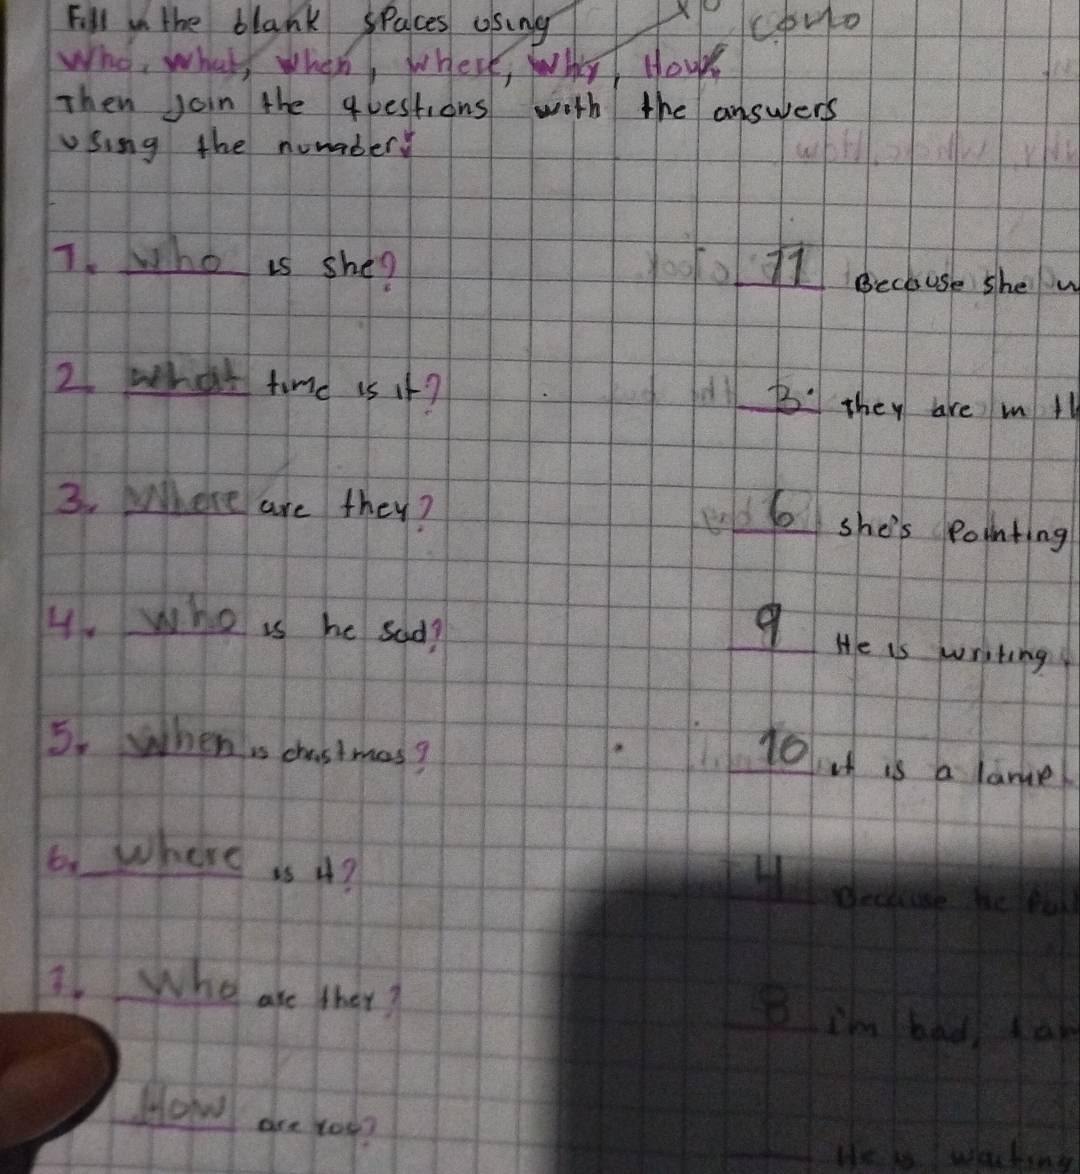 Fill in the blank spaces using
Who, What, When, Where, Why, How
Then join the questions with the answers
using the number
1. Who is she?
11 Because she
2. What time is it?
3. they are in
3. Where are they?
6 she's pointing
4. Who is he sad?
9 He is writing
5. When is christmas?
10 it is a
6. Where is it?
4 Because he
7. Who are they?
8 i'm bad, I
How are you?
He is